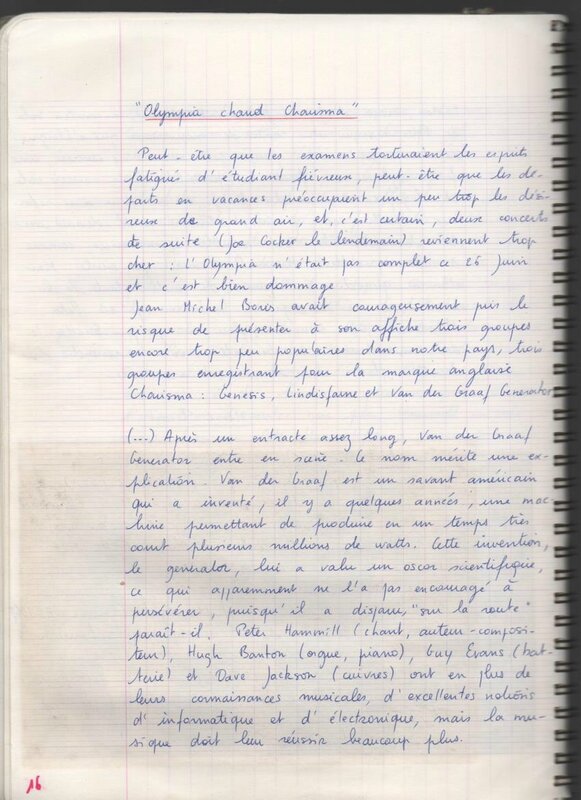 "Olympia chaud Charisma"
Peut-être que les examens torturaient les esprits
fatigués d'étudiant fiévreux, peut-être que les dé-
parts en vacances préoccupaient un peu trop les dési-
reux de grand air, et, c'est certain, deux concerts
de suite (Joe Cocker le lendemain) reviennent trop
cher : l'Olympia n'était pas complet ce 26 Juin
et c'est bien dommage
Jean Michel Boris avait courageusement pris le
risque de présenter à son affiche trois groupes
encore trop peu populaires dans notre pays, trois
groupes enregistrant pour la marque anglaise
Charisma : Genesis, Lindisfarne et Van der Graaf Generator
(...) Après un entracte assez long, Van der Graaf
Generator entre en scène. Ce nom mérite une ex-
plication. Van der Graaf est un savant américain
qui a inventé, il y a quelques années, une mac-
hine permettant de produire en un temps très
court plusieurs millions de watts. Cette invention,
le generator, lui a valu un oscar scientifique,
ce qui apparemment ne l'a pas encouragé à
persévérer, puisqu'il a disparu, "sur la route"
paraît-il. Peter Hammill (chant, auteur-composi-
teur), Hugh Banton (orgue, piano), Guy Evans (bat-
terie) et Dave Jackson (cuivres) ont en plus de
leurs connaissances musicales, d'excellentes notions
d'informatique et d'électronique, mais la mu-
sique doit leur réussir beaucoup plus.
16